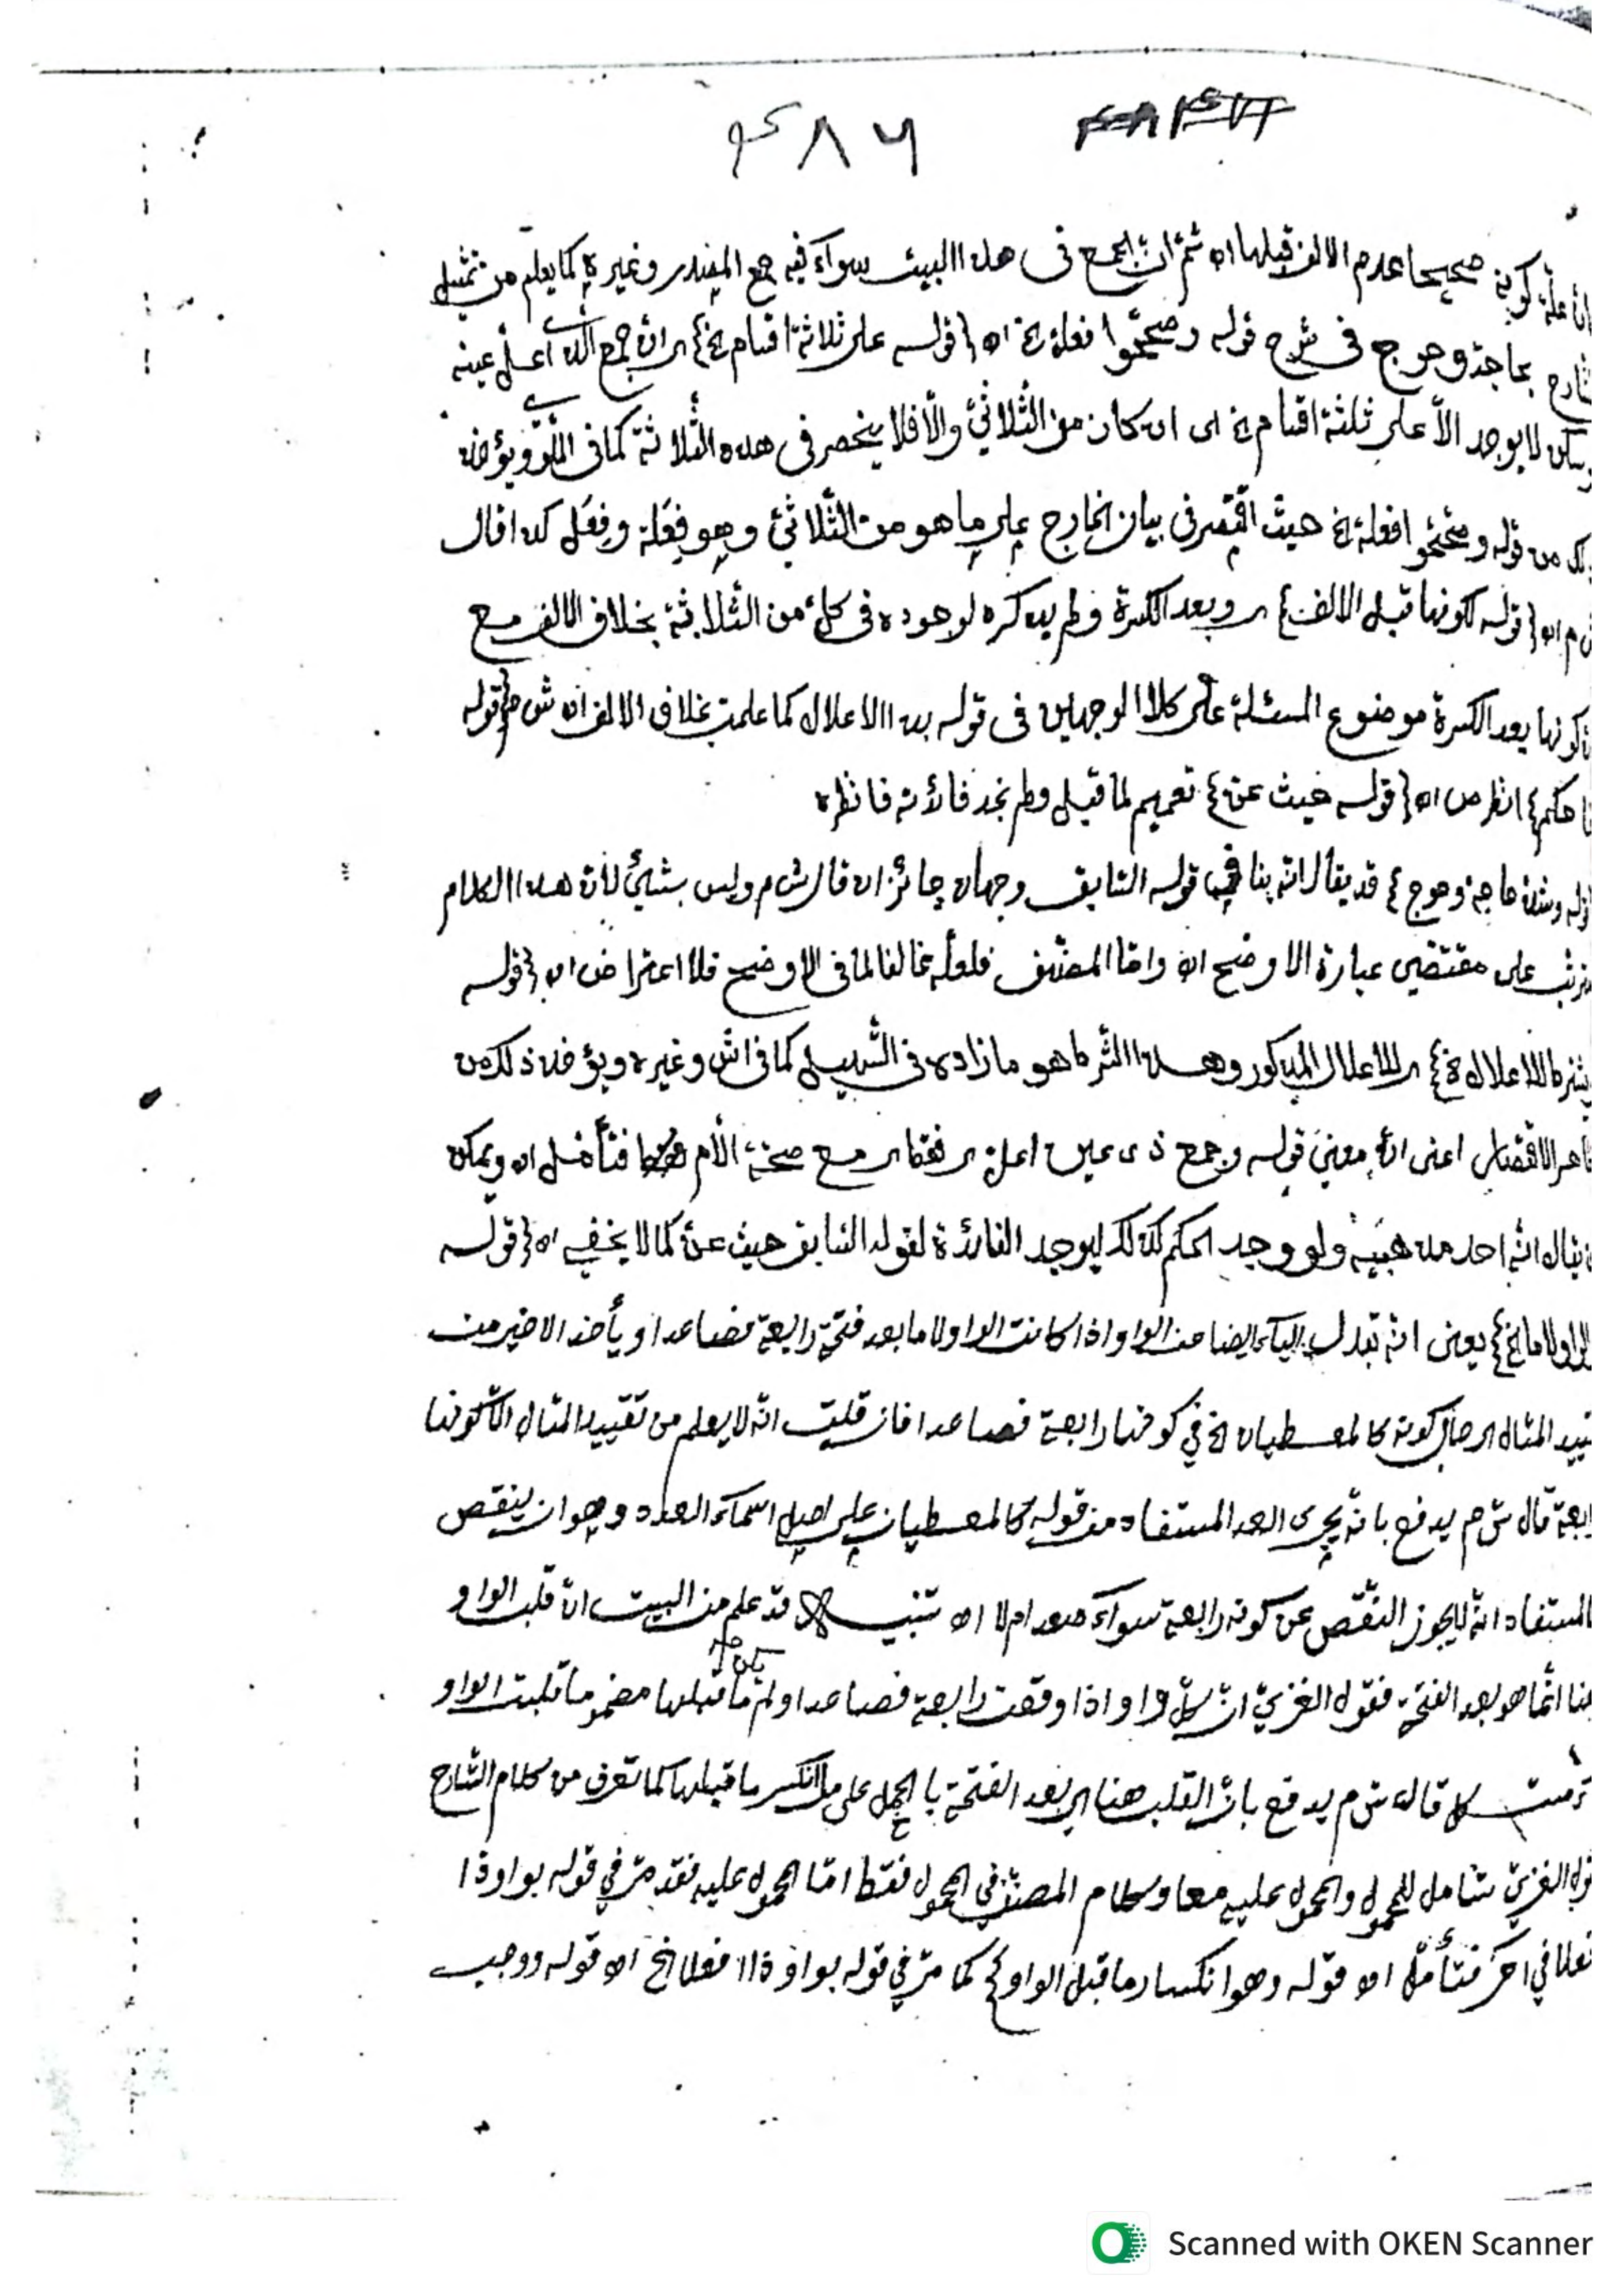 ٤٨٦
صحيحا عدم الالف قبلها اه ثم ان الجمع فى هذا البيت سواء فيه جمع المفرد وغيره كما يعلم من تمثيل
بحاجة وحوج فى شرح قوله وصححوا فعلة الخ اه قوله على ثلاثة اقسام الخ اى ان جمع الذى اعل عينه
لا يوجد الا على ثلثة اقسام الخ اى ان كان من الثلاثى والا فلا ينحصر فى هذه الثلاثة كما فى
من قوله وصححوا فعلة الخ حيث اقتصر فى بيان الخارج على ما هو من الثلاثى وهو فِعَلة وفِعَل كذا قال
ش م اه قوله لكونها قبل الالف اى وبعد الكسرة ولم يذكره لوجوده فى كل من الثلاثة بخلاف الالف مع
كونها بعد الكسرة موضوع المسئلة على كلا الوجهين فى قوله بذا الاعلال كما علمت بخلاف الالف اه ش م قوله
انظر ص اه قوله حيث عن تعميم لما قبل ولم نجد فائدته فانظره
وشذ حاجة وحوج قد يقال انه ينافى قوله السابق وجهان جائزان قال ش م وليس بشئ لان هذا الكلام
على مقتضى عبارة الاوضح اه واما المصنف فلعله مخالفا لما فى الاوضح فلا اعتراض اه قوله
للاعلال المذكور وهذا الشرط هو ما زاده فى التسهيل كما فى اش وغيره ويؤخذ ذلك من
اعنى ان معنى قوله وجمع ذى عين اعل اى فقط اى مع صحة اللام فتأمل اه ويمكن
يقال انه احد مذهبيه ولو وجد الحكم كذلك ليوجد الفائدة لقوله السابق حيث عن كما لا يخفى اه قوله
الخ يعنى انه تبدل الياء ايضا من الواو اذا كانت الواو لاما بعد فتحة رابعة فصاعدا ويأخذ الاخير من
المثال اى حال كونه كالمعطيان الخ فى كونها رابعة فصاعدا فان قلت انه لا يعلم من تقييد المثال الا كونها
رابعة قال ش م يدفع بانه يجرى العد المستفاد من قوله كالمعطيان على اصل اسماء العدد وهو ان ينقص
المستفاد انه لا يجوز النقص عن كونه رابعة سواء صعد ام لا اه تنبيه قد علم من البيت ان قلب الواو
هنا انما هو بعد الفتحة فقول الغزى ان كل واو اذا وقعت رابعة فصاعدا ولم يكن ما قبلها مضموما قلبت الواو
قال ش م يدفع بان القلب هنا اى بعد الفتحة بالحمل على ما انكسر ما قبلها كما تعرف من كلام الشارح
الغزى شامل للمحمول والمحمول عليه معا وكلام المصنف فى المحمول فقط اما المحمول عليه فقد مر فى قوله بواو ذا
افعلا فى آخر فتأمل اه قوله وهو انكسار ما قبل الواو الخ كما مر فى قوله بواو ذا افعلا الخ اه قوله ووجب
Scanned with OKEN Scanner